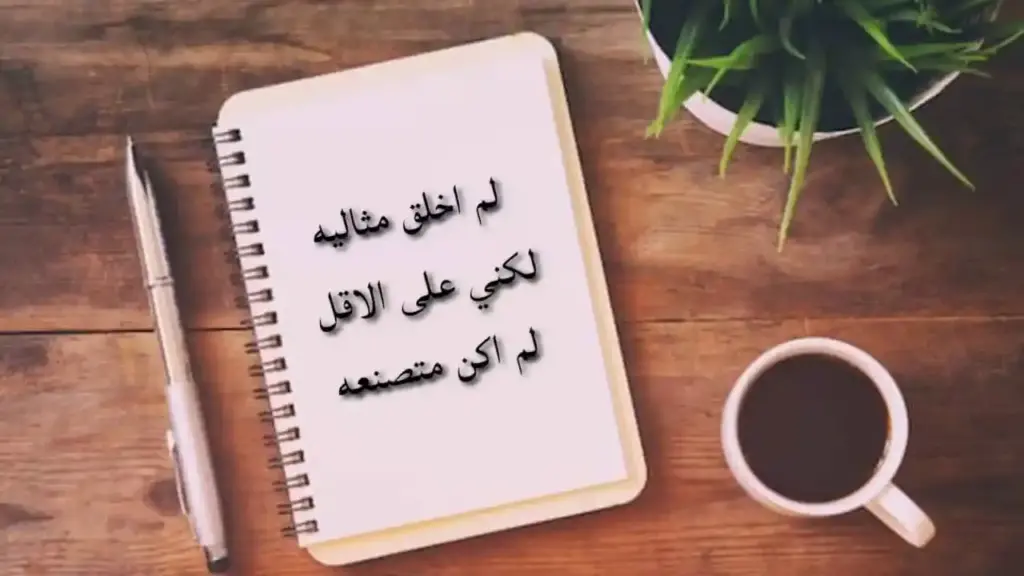 لم اخلق مثاليه
لكني على الاقل
لم اكن متصنعه